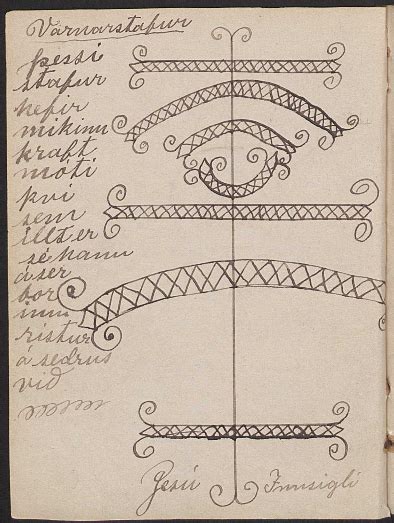 Varnarstafur
þessi
stafur
hefir
mikinn
kraft
móti
því
sem
illt er
sé hann
á ser
bor
inn
ristur
á sedrus
við
Jesú Innsigli